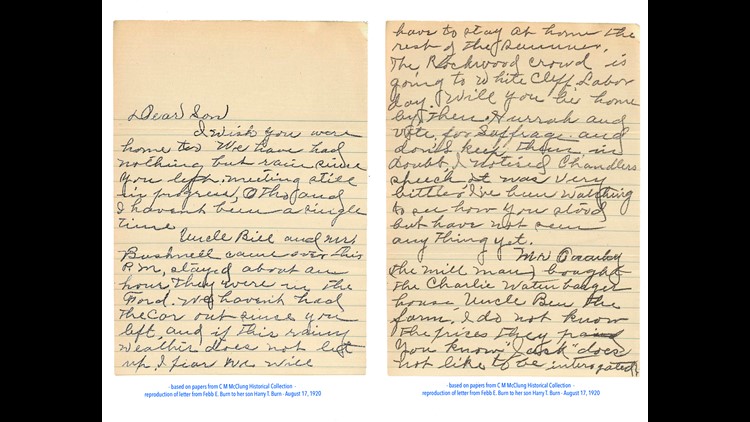 Dear Son
I wish you were
home too We have had
nothing but rain since
you left. meeting still
in progress, Otho and
I havent been a single
time
Uncle Bill and Mrs
Bushnell came over this
P.M, stayed about an
hour They were in the
Ford. We haven't had
the car out since you
left, and if this rainy
weather does not let
up, I fear we will
- based on papers from C M McClung Historical Collection -
reproduction of letter from Febb E. Burn to her son Harry T. Burn - August 17, 1920
have to stay at home the
rest of the summer.
The Rockwood crowd is
going to White Cliff Labor
day. Will you be home
by then. Hurrah and
vote for Suffrage and
dont keep them in
doubt, I noticed Chandlers
speech, it was very
bitter. I've been watching
to see how you stood
but have not seen
any thing yet.
Mr
the mill man, bought
the Charlie Waterbarger
house Uncle Ben the
farm. I do not know
the prises they paid
You know "Jack" does
not like to be interogated,
- based on papers from C M McClung Historical Collection -
reproduction of letter from Febb E. Burn to her son Harry T. Burn - August 17, 1920